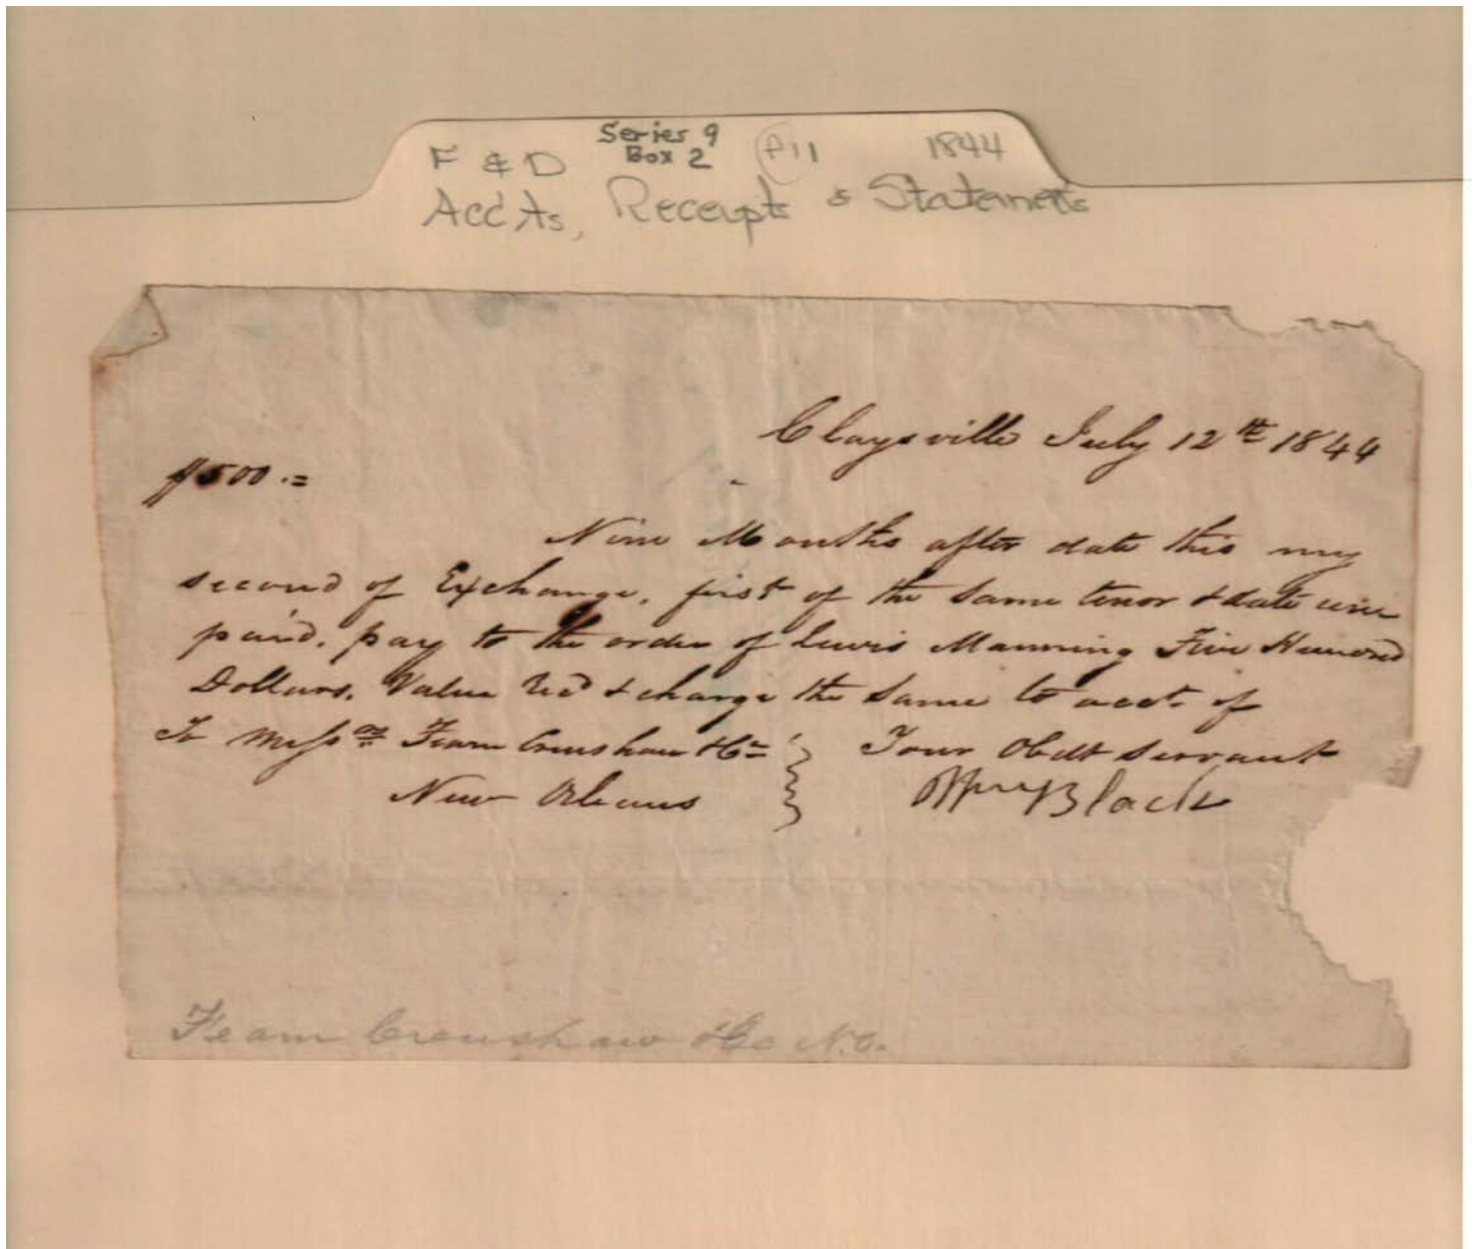 Series 9
F & D Box 2 P11 1844
Acc'ts, Receipts & Statements
Claysville July 12th 1844
$500.=
Nine Months after date this my
second of Exchange, first of the same tenor & date
paid. pay to the order of Lewis Manning Five Hundred
Dollars. Value Rec'd & charge the same to acct. of
To Messrs Fearn Crenshaw & Co Your Obdt Servant
New Orleans Black
Fearn Crenshaw & Co N.O.